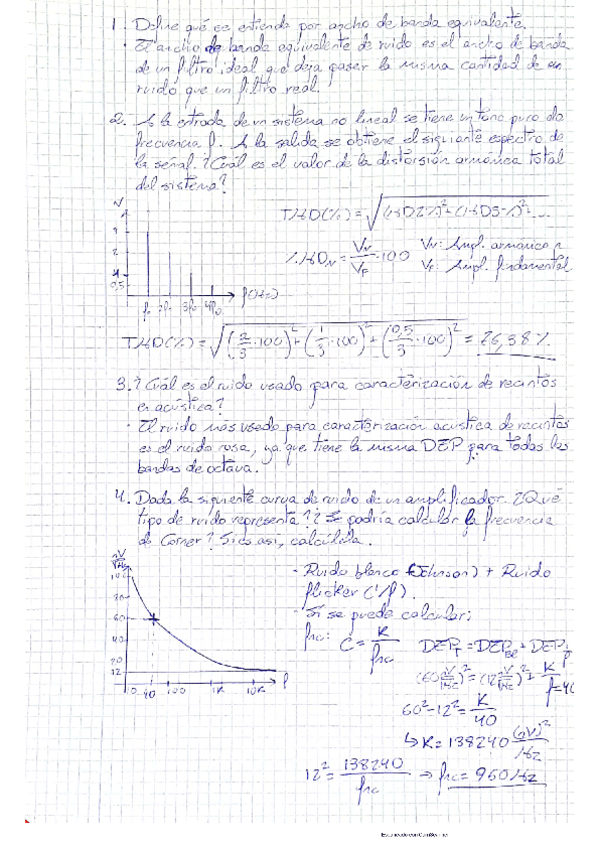 1. Define qué se entiende por ancho de banda equivalente.
· El ancho de banda equivalente de ruido es el ancho de banda
de un filtro ideal que deja pasar la misma cantidad de
ruido que un filtro real.
2. A la entrada de un sistema no lineal se tiene un tono puro de
frecuencia f. A la salida se obtiene el siguiente espectro de
la señal. ¿Cuál es el valor de la distorsión armónica total
del sistema?
V
THD(%) = √(HD2%)²+(HD3%)²...
%HDN = VN/VF ·100
VN: Ampl. armónico n
VF: Ampl. fundamental
2
1
0,5
f0 2f0 3f0 4f0 f(Hz)
THD(%) = √(2/3·100)²+(1/3·100)²+(0,5/3·100)² = 76,38%
3. ¿Cuál es el ruido usado para caracterización de recintos
en acústica?
· El ruido más usado para caracterización acústica de recintos
es el ruido rosa, ya que tiene la misma DEP para todas las
bandas de octava.
4. Dada la siguiente curva de ruido de un amplificador. ¿Qué
tipo de ruido representa? ¿Se podría calcular la frecuencia
de Corner? Si es así, calcúlala.
nV/√Hz
100
80
60
40
20
12
10 40 100 1K 10K f
- Ruido blanco (Johnson) + Ruido
flicker (1/f).
- Sí se puede calcular:
fnc: C = K/fnc
DEPT = DEPBL + DEP1/f
(60 nV/√Hz)² = (12 nV/√Hz)² + K/f=40
60²-12² = K/40
↳ K = 138240 (nV)²/Hz
12² = 138240/fnc → fnc = 960Hz
Escaneado con CamScanner